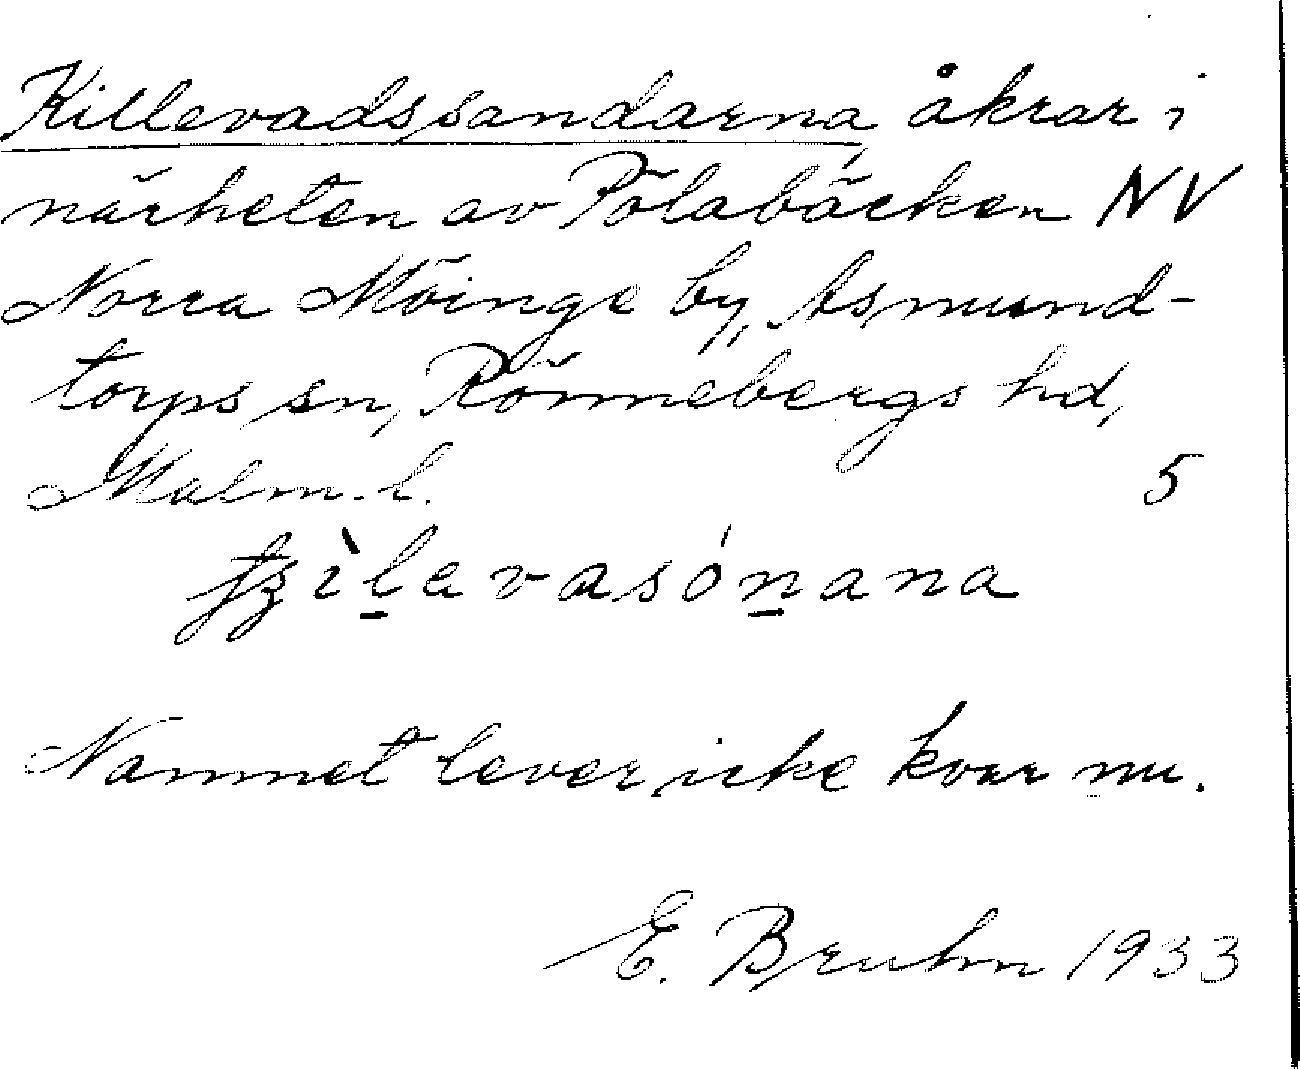 Killevadssandarna, åkrar i
närheten av Pölabäcken NV
Norra Möinge by, Asmund-
torps sn, Rönnebergs hd,
Malm. l.
5
Namnet lever icke kvar nu.
E. Bruhn 1933